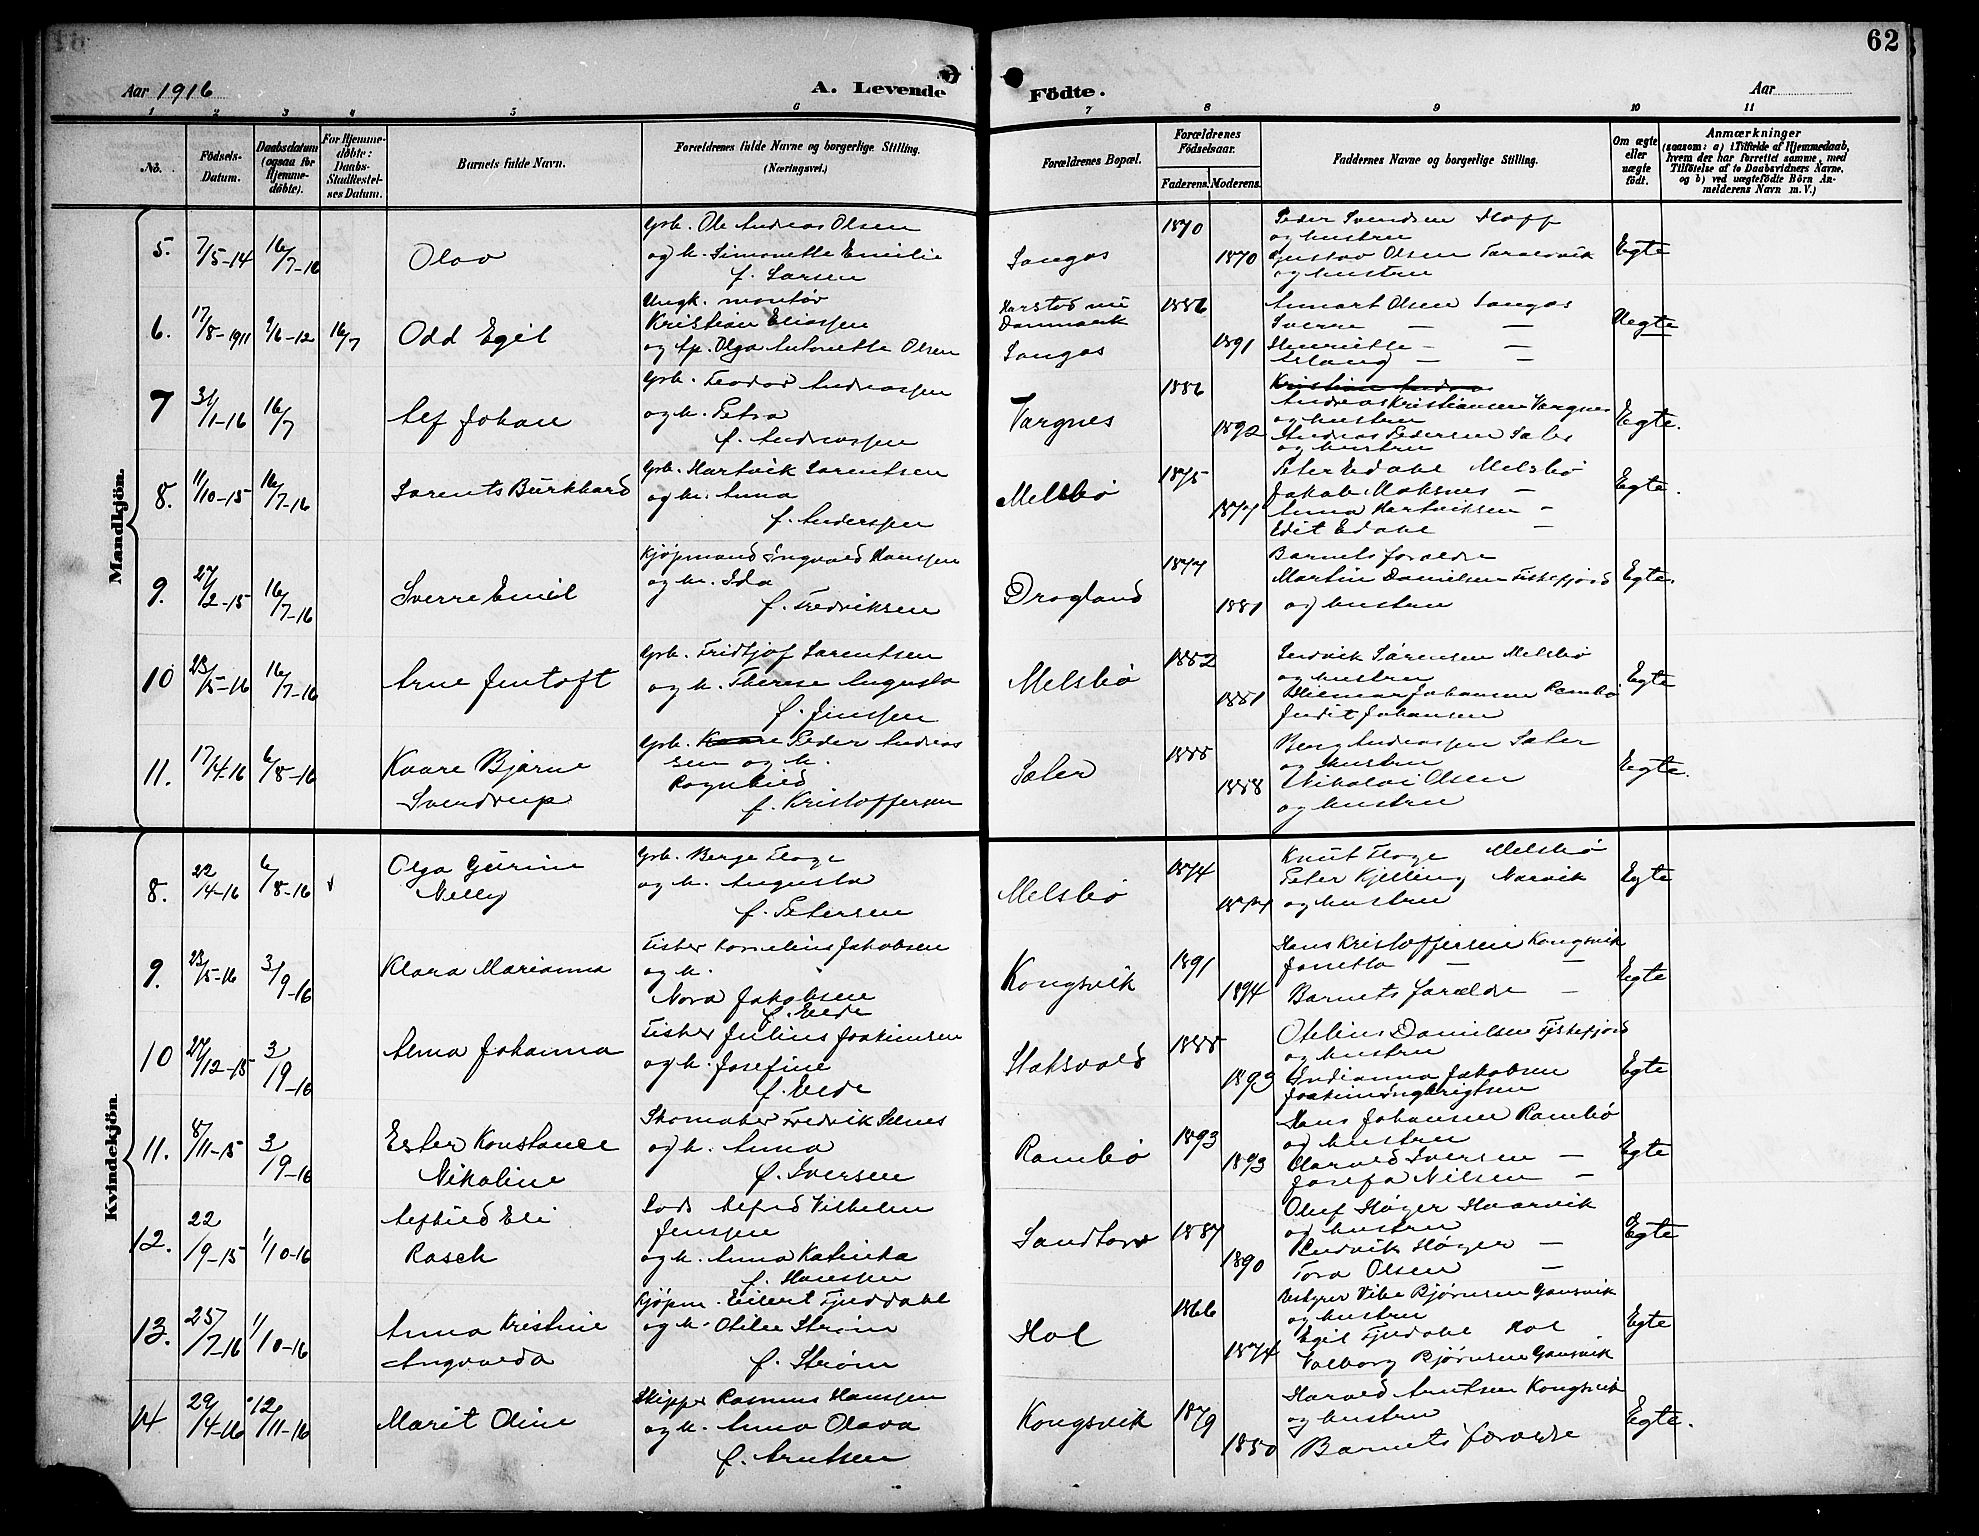 62
Aar 1916
A. Levende Födte.
Aar
1 2 3 4 5 6 7 8 9 10 11
No.
Födsels-Datum.
Daabsdatum (ogsaa for Hjemme-döbte).
For Hjemme-döbte: Daabs-Stadfæstel-ses Datum.
Barnets fulde Navn.
Forældrenes fulde Navne og borgerlige Stilling.
(Næringsvei.)
Forældrenes Bopæl.
Forældrenes Födselsaar.
Faderens. Moderens.
Faddernes Navne og borgerlige Stilling.
Om ægte eller uægte födt.
Anmærkninger
(saasom: a) i Tilfælde af Hjemmedaab,
hvem der har forrettet samme, med
Tilföielse af to Daabsvidners Navne,
og b) ved uægtefödte Börn An-
melderens Navn m. V.)
Mandkjön.
5. 7/5-14 16/7-16 Olav
Grb. Ole Andreas Olsen
og h. Simonette Emilie
f. Larsen
Sangas 1870 1870
Peder Svendsen Hopp
og hustru
Gustav Olsen
og hustru
Egte
6. 17/8-1911 9/6-12 16/7 Odd Egil
Ungk. montør
Kristian Eliassen
og Ap. Olga Antonette Olsen
Harstad nu
Danmark
Sangas 1886 1891
Annart Olsen Sangas
Sverre — —
Henriette — —
Erling — —
Uegte
7 31/1-16 16/7 Alf Johan
Grb. Teodor Andreassen
og h. Petra
f. Andreassen
Vargnes 1886 1892
Andreas Kristiansen Vargnes
og hustru
Andreas Pedersen Sæter
og hustru
Egte.
8. 11/10-15 16/7-16 Lorents Burkhard
Grb. Hartvik Lorentsen
og h. Anna
f. Anderssen
Melsbø 1875 1877
Peter Edahl Melsbø
Jakob Moksnes —
Anna Hartviksen —
Edit Edahl —
Egte.
9. 27/2-15 16/7-16 Sverre Emil
Kjøpmand Ingvald Hanssen
og h. Ida
f. Fredriksen
Drogland 1877 1881
Barnets forældre
Martin Danielsen Fiskefjord
og hustru
Egte.
10 23/5-16 16/7-16 Arne Jentoft
Grb. Fridtjof Lorentsen
og h. Therese Augusta
f. Jenssen
Melsbø 1882 1881
Ludvik Sørensen Melsbø
og hustru
Hilmar Johansen Rambø
Judit Johansen
Egte
11. 17/4-16 6/8-16 Kaare Bjarne
Svendrup
Grb. Kaare Peder Andreas
sen og h.
Ragnhild
f. Kristoffersen
Sæter 1888 1888
Berg Andreassen Sæter
og hustru
Nikolai Olsen
og hustru
Egte.
Kvindekjön.
8. 22/4-16 6/8-16 Olga Gurine
Nelly
Grb. Berge Floge
og h. Augusta
f. Petersen
Melsbø 1874 1877
Knut Floge Melsbø
Peter Kjelling Narvik
og hustru
Egte
9. 23/5-16 3/9-16 Klara Marianna
Fisker Kornelius Jakobsen
og h.
Nora Jakobsen
f. Eide
Kongsvik 1891 1894
Hans Kristoffersen Kongsvik
Janetta — —
Barnets forældre —
Egte
10 27/12-15 3/9-16 Alma Johanna
Fisker Julius Joakimsen
og h. Josefine
f. Eide
Staksvold 1888 1893
Otelius Danielsen Fiskefjord
og hustru
Indianna Jakobsen
Joakim Ingbrigtsen
Egte
11. 8/11-15 3/9-16 Ester Konstance
Nikoline
Skomaker Fredrik Selnes
og h. Anna
f. Iversen
Rambø 1893 1893
Hans Johansen Rambø
og hustru
Harald Iversen —
Josefa Nilsen —
Egte
12. 22/9-15 1/10-16 Alfhild Eli
Rasch
Lods Alfred Vilhelm
Jenssen
og h. Anna Katinka
f. Hanssen
Sandtorv 1887 1890
Oluf Høger Haarvik
og hustru
Ludvik Høger —
Tora Olsen —
Egte
13. 25/7-16 1/10-16 Anna Kristine
Ingvarda
Kjøpm. Eilert Fjeldahl
og h. Otelie Strøm
f. Strøm
Hol 1866 1874
Bestyrer Vibe Bjørnsen Gausvik
og hustru
Egil Fjeldahl Hol
Valborg Bjørnsen Gausvik
Egte
14 29/4-16 12/11-16 Marit Oline
Skipper Rasmus Hanssen
og h. Anna Olava
f. Arntsen
Kongsvik 1879 1880
Harald Arntsen Kongsvik
og hustru
Barnets forældre
Egte.